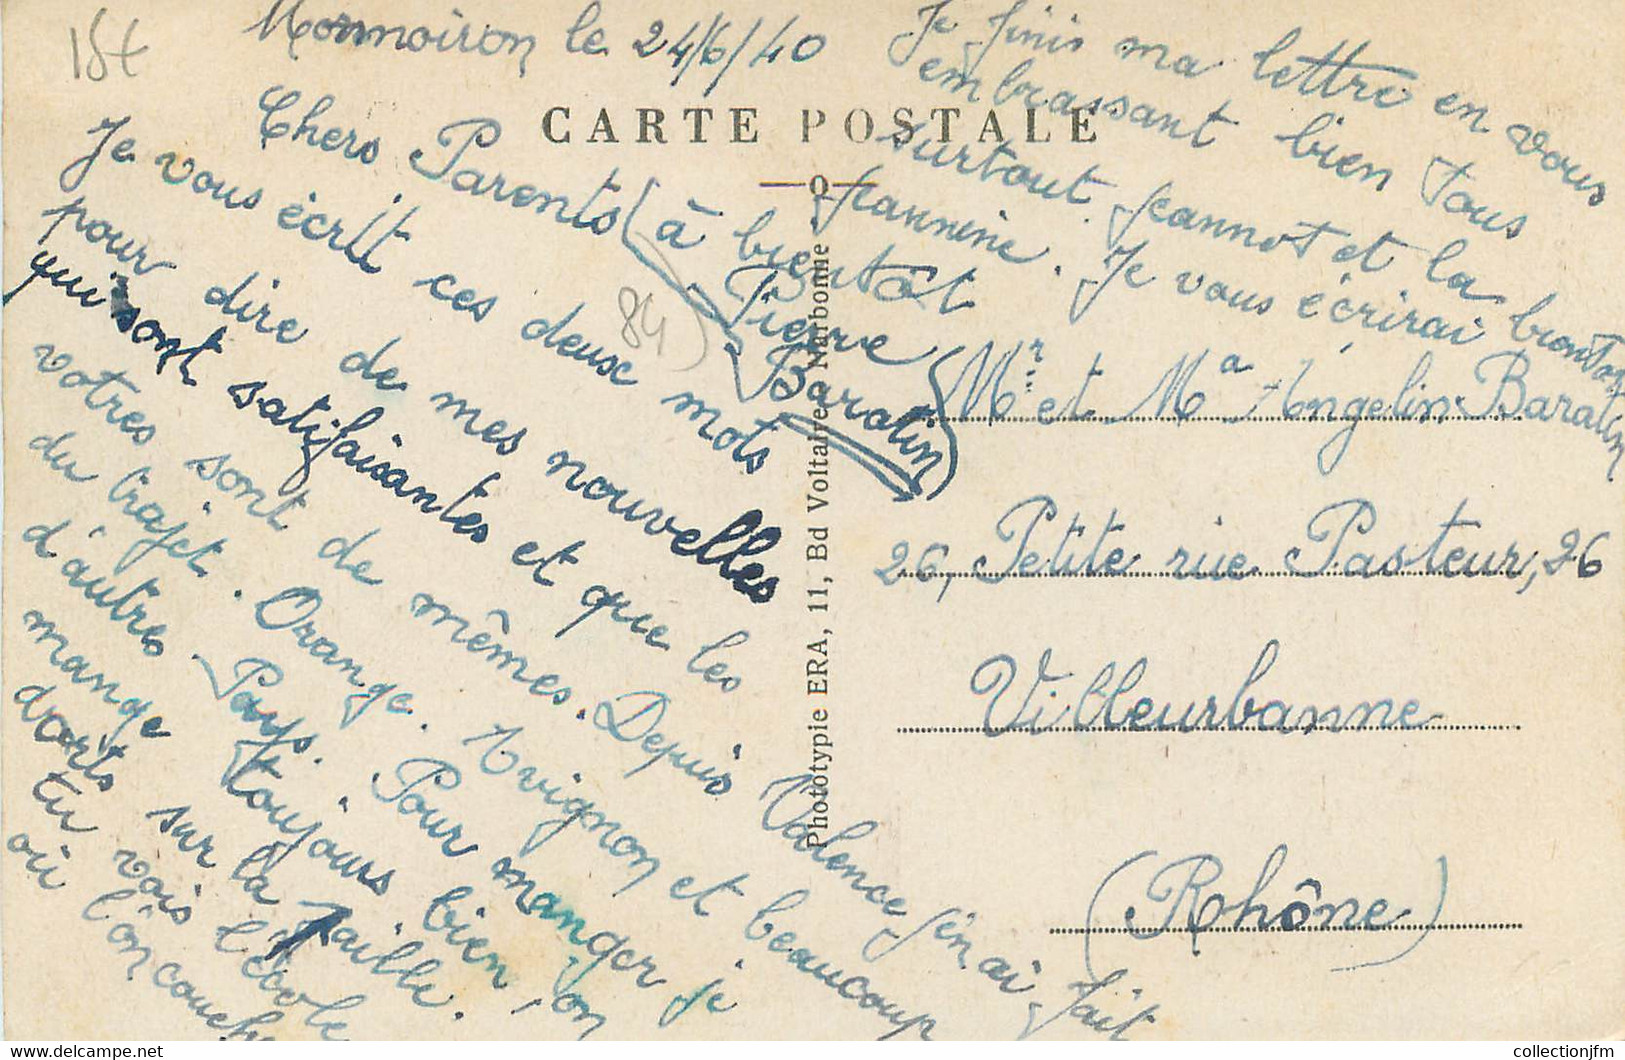 18t
Mormoiron le 24/6/40
CARTE POSTALE
Chers Parents
Je vous écrit ces deux mots
pour dire de mes nouvelles
qui sont satifaisantes et que les
votres sont de mêmes. Depuis Valence j'en ai fait
du trajet. Orange. Avignon et beaucoup
d'autres Pays. Pour manger je
mange toujours bien, on
dorts sur la Paille.
tu vois l'école
où l'on couche
Je finis ma lettre en vous
embrassant bien tous
surtout Jeannot et la
Jeannine. Je vous écrirai bientôt
à bientôt
Pierre
Baratin
84
Mr et Ma Angelin Baratin
26, Petite rue Pasteur, 26
Villeurbanne
(Rhône)
Phototypie ERA, 11, Bd Voltaire Narbonne
collectionjfm